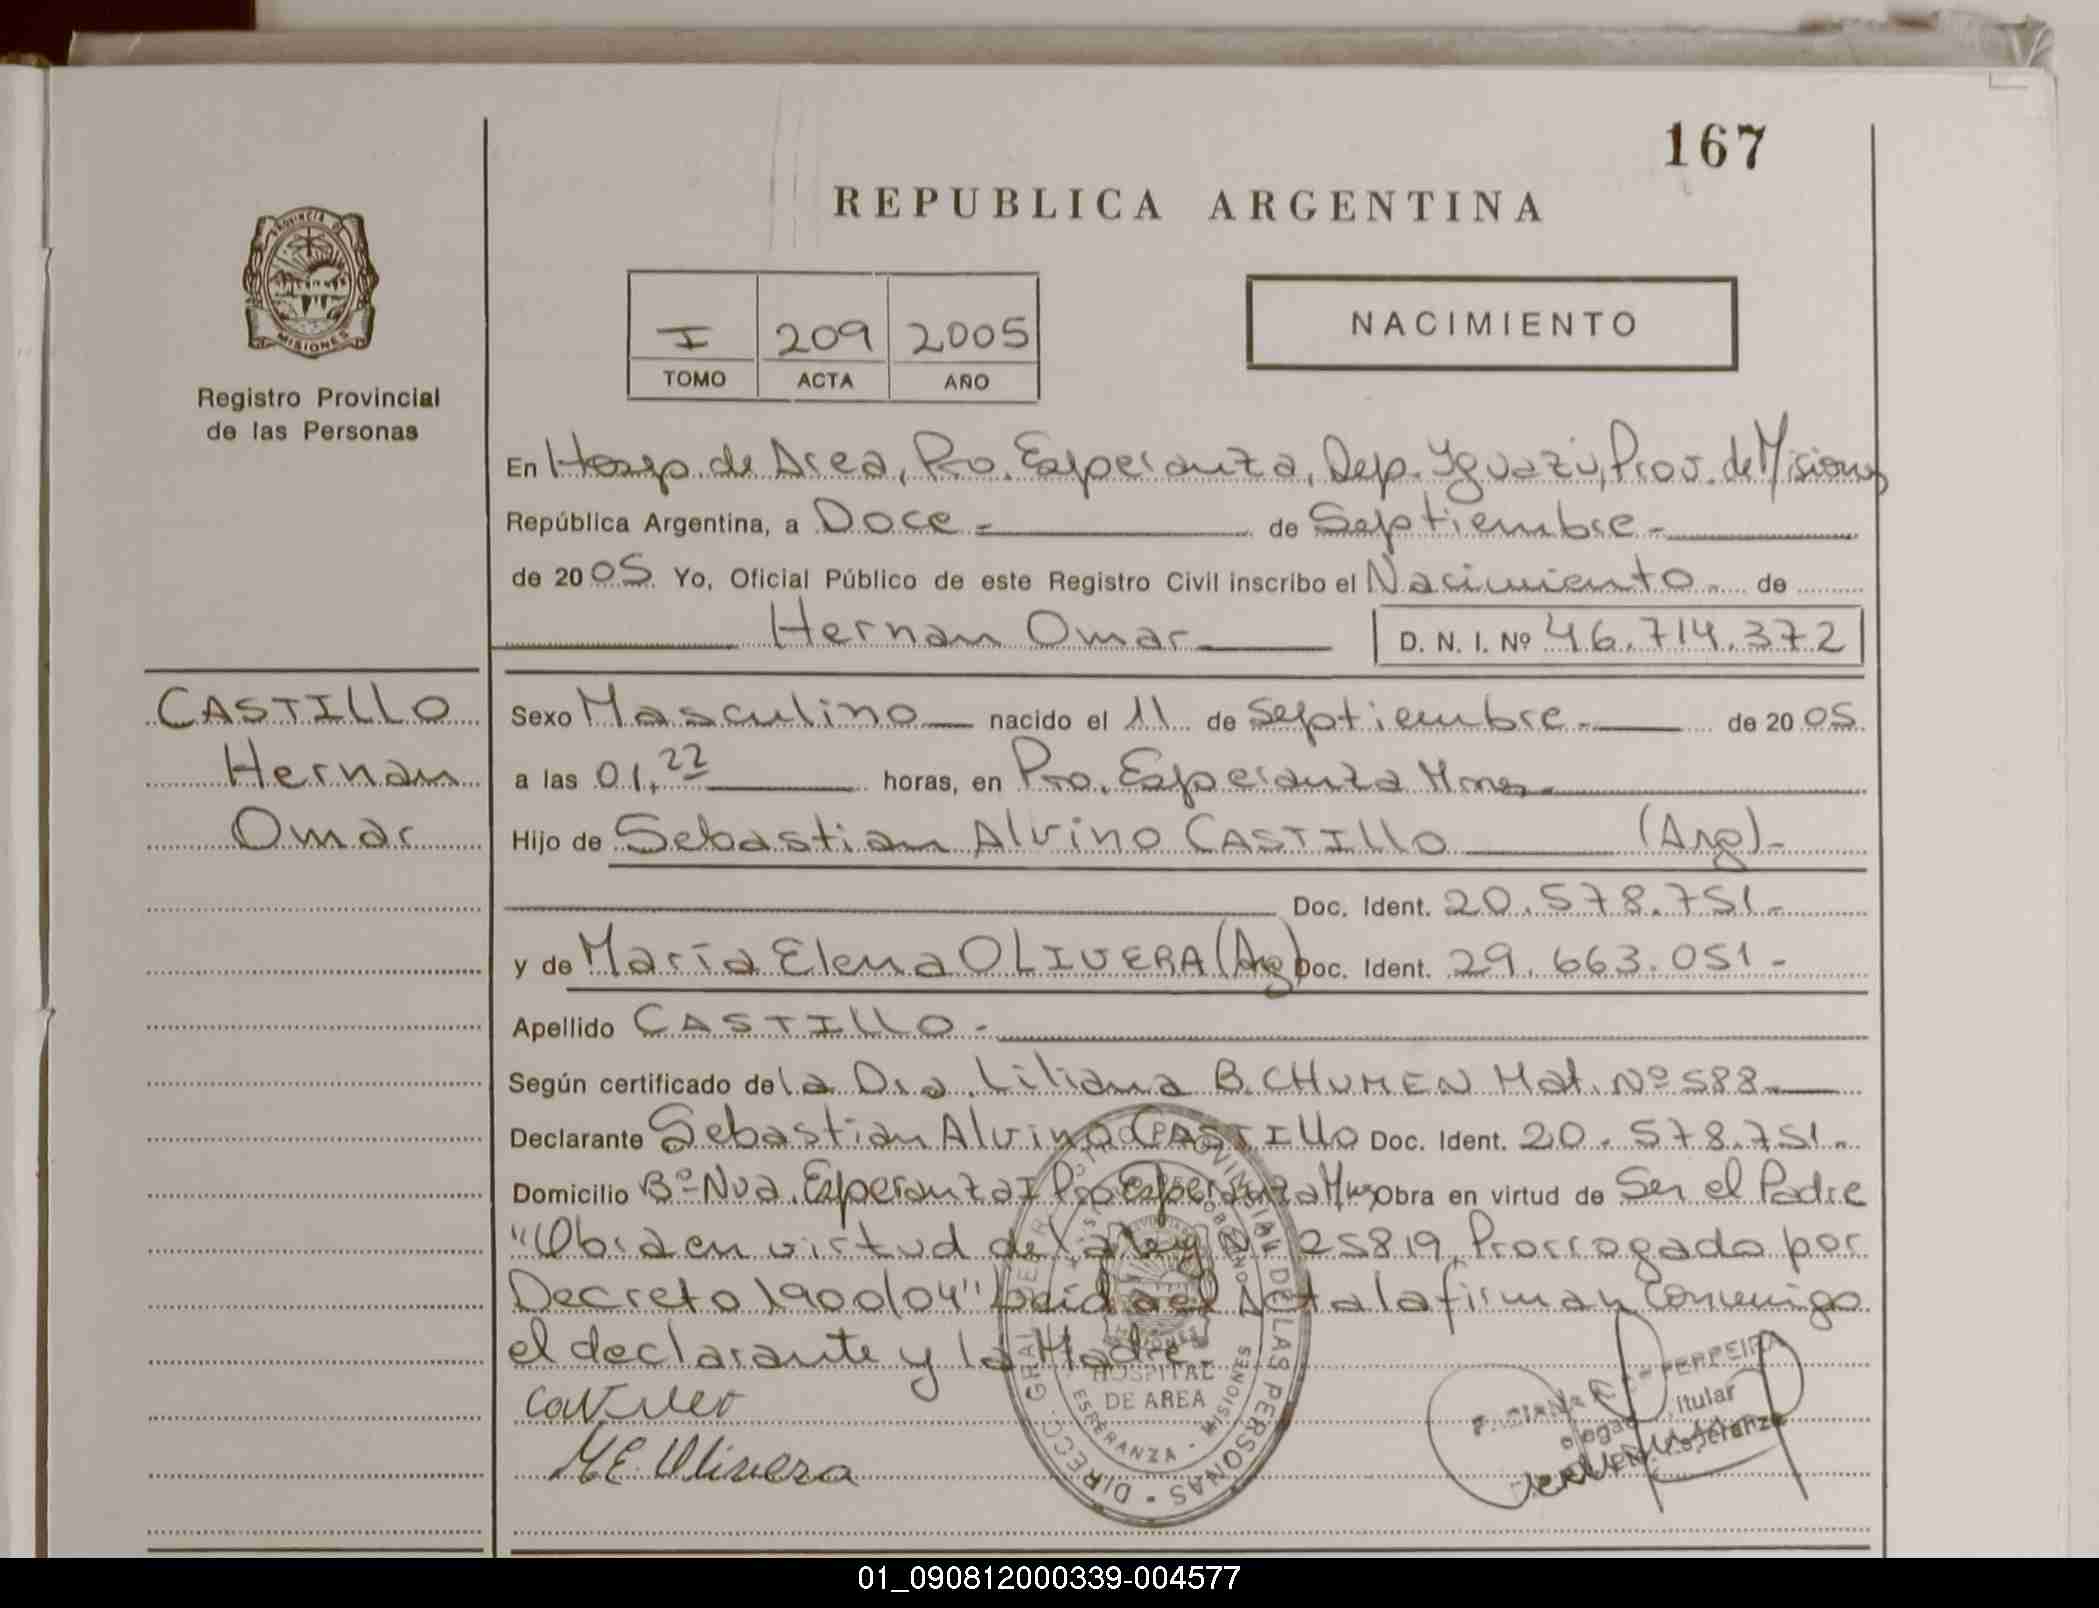 167
REPUBLICA ARGENTINA
PROVINCIA DE
MISIONES
Registro Provincial
de las Personas
I 209 2005
TOMO ACTA AÑO
NACIMIENTO
En Hosp. de Area, Pto. Esperanza, Dep. Iguazú, Prov. de Misiones
República Argentina, a Doce.- de Septiembre.-
de 2005 Yo, Oficial Público de este Registro Civil inscribo el Nacimiento.- de
Hernan Omar D. N. I. Nº 46.714.372
CASTILLO
Hernan
Omar
Sexo Masculino nacido el 11 de Septiembre.- de 2005
a las 01,22 horas, en Pto. Esperanza Mnes.-
Hijo de Sebastian Alvino CASTILLO (Arg).-
Doc. Ident. 20.578.751.-
y de María Elena OLIVERA (Arg) Doc. Ident. 29.663.051.-
Apellido CASTILLO.-
Según certificado de la Dra. Liliana B. CHUMEN Mat. Nº 588.-
Declarante Sebastian Alvino CASTILLO Doc. Ident. 20.578.751.-
Domicilio Bº Nva. Esperanza I Pto Esperanza Mnes Obra en virtud de Ser el Padre
"Obra en virtud de la ley Nº 25819, Prorrogado por
Decreto 1900/04" Leída el Acta la firman Conmigo
el declarante y la Madre.
M E. Olivera
DIRECC. GRAL. DEL REG. PROVINCIAL DE LAS PERSONAS
HOSPITAL
DE AREA
ESPERANZA - MISIONES
FERREIRA
Titular
01_090812000339-004577